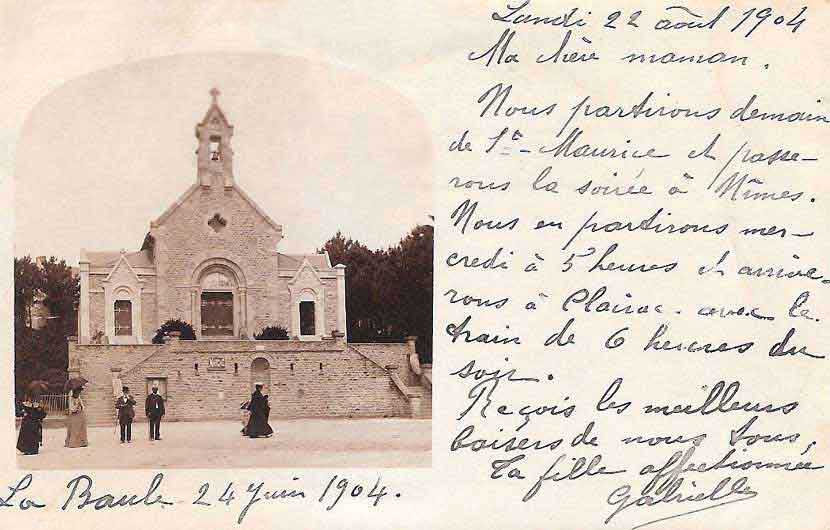 Lundi 22 août 1904
Ma chère maman.
Nous partirons demain
de St-Maurice et passe-
rons la soirée à Nîmes.
Nous en partirons mer-
credi à 5 heures et arrive-
rons à Clairac. avec le
train de 6 heures du
soir.
Reçois les meilleurs
baisers de nous tous,
Ta fille affectionnée
Gabrielle
La Baule 24 Juin 1904.